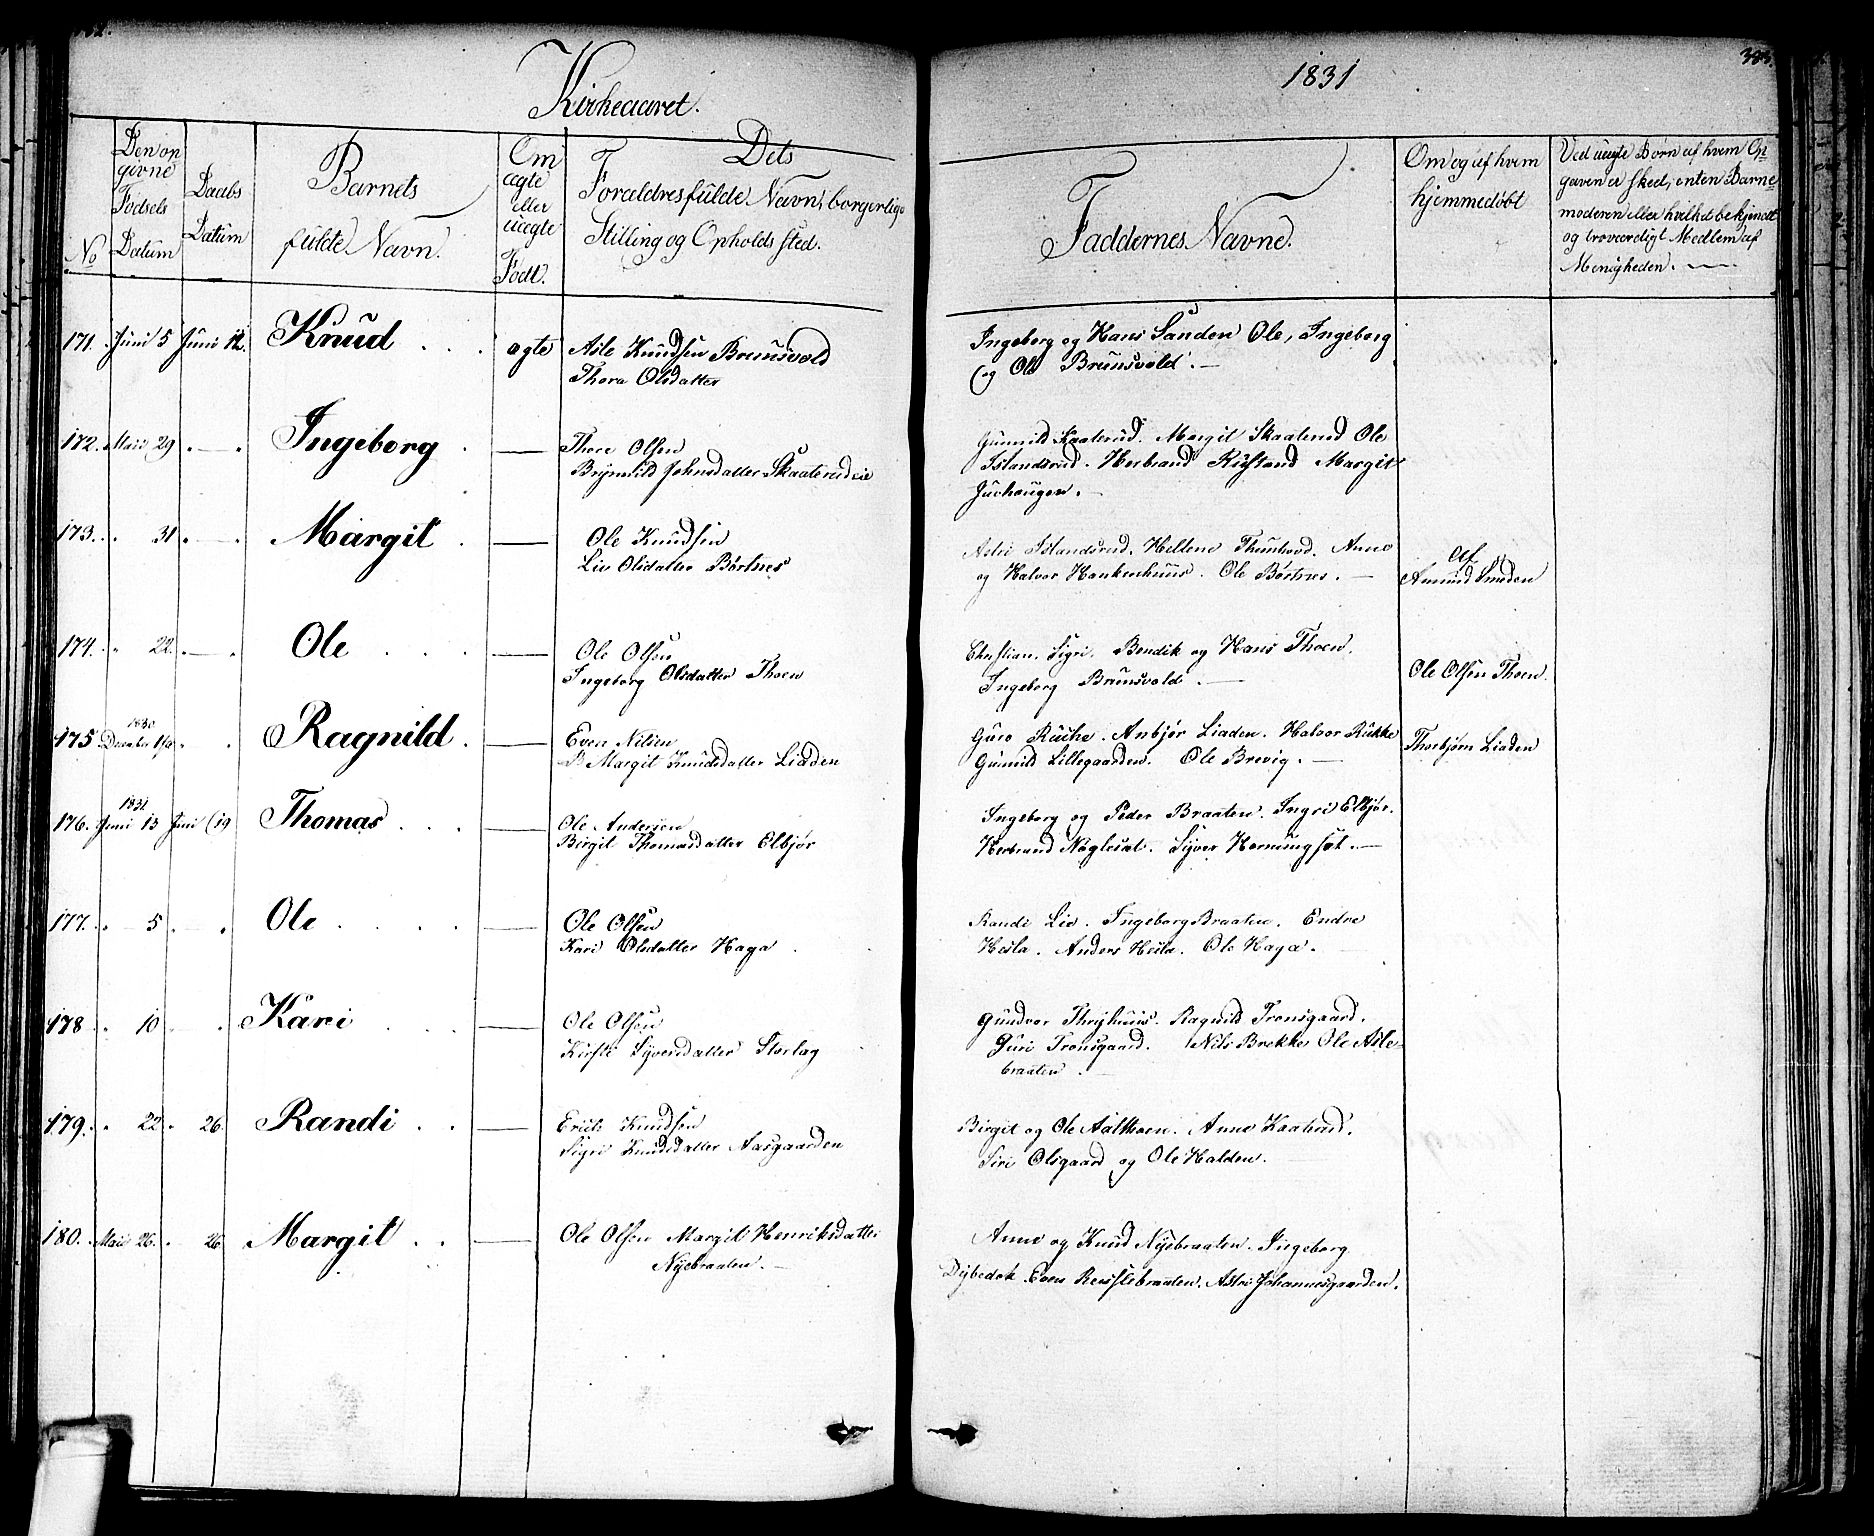 Kirkeaaret.
1831
No
Den op
givne
Fødsels
Datum
Daabs
Datum
Barnets
fulde Navn.
Om
ægte
eller
uægte
Født.
Dets
Forældres fulde Navn, borgerlige
Stilling og Opholds sted.
Faddernes Navne.
Om og af hvem
hjemmedøbt
Ved uægte Børn af hvem Op-
gaven er skeed, enten Barne
moderen eller hvilket bekjendt
og troværdigt Medlem af
Menigheden.
171. Juni 5 Juni 12. Knud ægte Asle Knudsen Brunsvold
Thora Olsdatter
Ingeborg og Hans Sanden Ole, Ingeborg
og Ole Brunsvold.
172. Maii 29 Ingeborg Thore Olsen
Brynhild Johnsdatter Skaaterudeie
Gunnild Kaaterud. Margit Skaaterud Ole
Islandsrud. Herbrand Rustand Margit
Juvhaugen.
173. 31 Margit Ole Knudsen
Liv Olsdatter Børtnes
Astri Islandsrud. Hellene Thunhovd. Anne
og Halvor Hankenhuus. Ole Børtnes.
af
Amund Smeden
174. 22. Ole Ole Olsen
Ingeborg Olsdatter Thoen
Christian. Sigri. Bendik og Hans Thoen.
Ingeborg Brunsvold.
Ole Olsen Thoen.
1830
175 December Ragnild. Even Nilsen
Margit Knudsdatter Liadden
Guro Rukke. Anbjør Liaden. Halvor Rukke
Gunnild Lillegaarden. Ole Brevig.
Thorbjørn Liaden
1831
176. Juni 13 Juni 19 Thomas Ole Andersen
Birgit Thomasdatter Elbjør
Ingeborg og Peder Braaten. Ingri Elbjør.
Herbrand Nøglesæt. Syver Horningsæt.
177. 5 Ole Ole Olsen
Kari Olsdatter Haga
Randi Lie. Ingeborg Braaten. Endre
Hesla. Anders Hesla. Ole Haga.
178 10 Kari Ole Olsen
Kirsti Syversdatter Storlag
Gundvor Thrijhuus. Ragnild Tronsgaard.
Guri Tronsgaard. Nils Brekke Ole Asle-
braaten
179. 22. 26. Randi Erich Knudsen
Sigri Knudsdatter Aasgaarden
Birgit og Ole Aalkoen. Anne Kaalrud.
Siri Olsgaard og Ole Halden.
180. Maii 26. 26 Margit Ole Olsen Margit Henriksdatter
Nyebraaten.
Anne og Knud Nyebraaten. Ingeborg
Dybedok. Even Reuslebraaten. Astri Johannesgaarden.